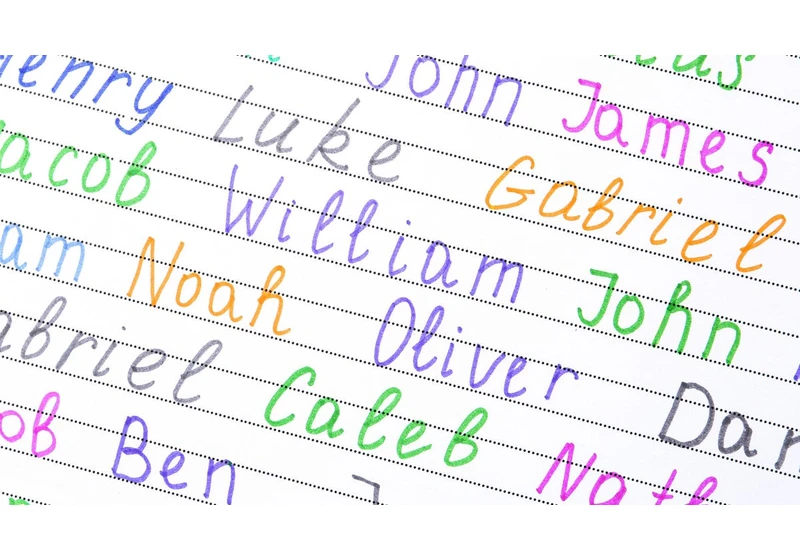 John James
Henry Luke Gabriel
acob William John
am Noah Oliver
abriel Caleb Nath
ob Ben